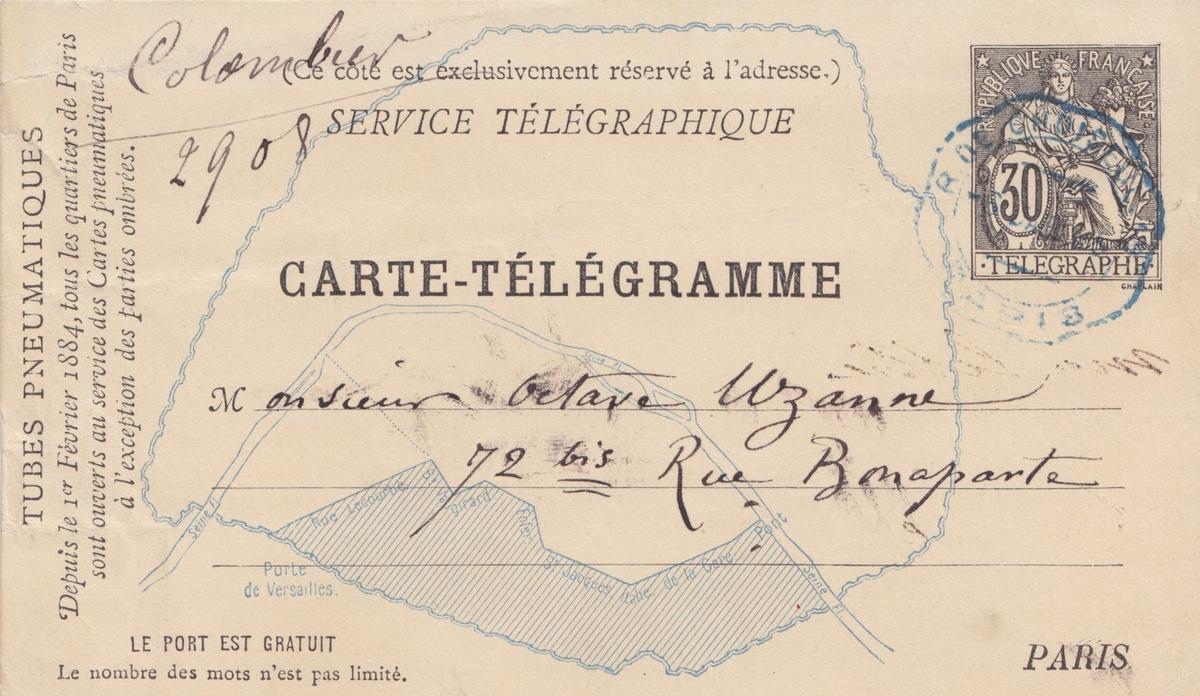 Colombier
2908
(Ce côté est exclusivement réservé à l'adresse.)
SERVICE TÉLÉGRAPHIQUE
CARTE-TÉLÉGRAMME
TUBES PNEUMATIQUES
Depuis le 1er Février 1884, tous les quartiers de Paris
sont ouverts au service des Cartes pneumatiques
à l'exception des parties ombrées.
REPUBLIQUE FRANCAISE
30
·TELEGRAPHE·
CHAPLAIN
Monsieur Octave Uzanne
72 bis Rue Bonaparte
Seine Fl.
Rue Lecourbe
Girard
St Jacques
Italie
de la Gare
Pont
Seine Fl.
Porte
de Versailles.
LE PORT EST GRATUIT
Le nombre des mots n'est pas limité.
PARIS